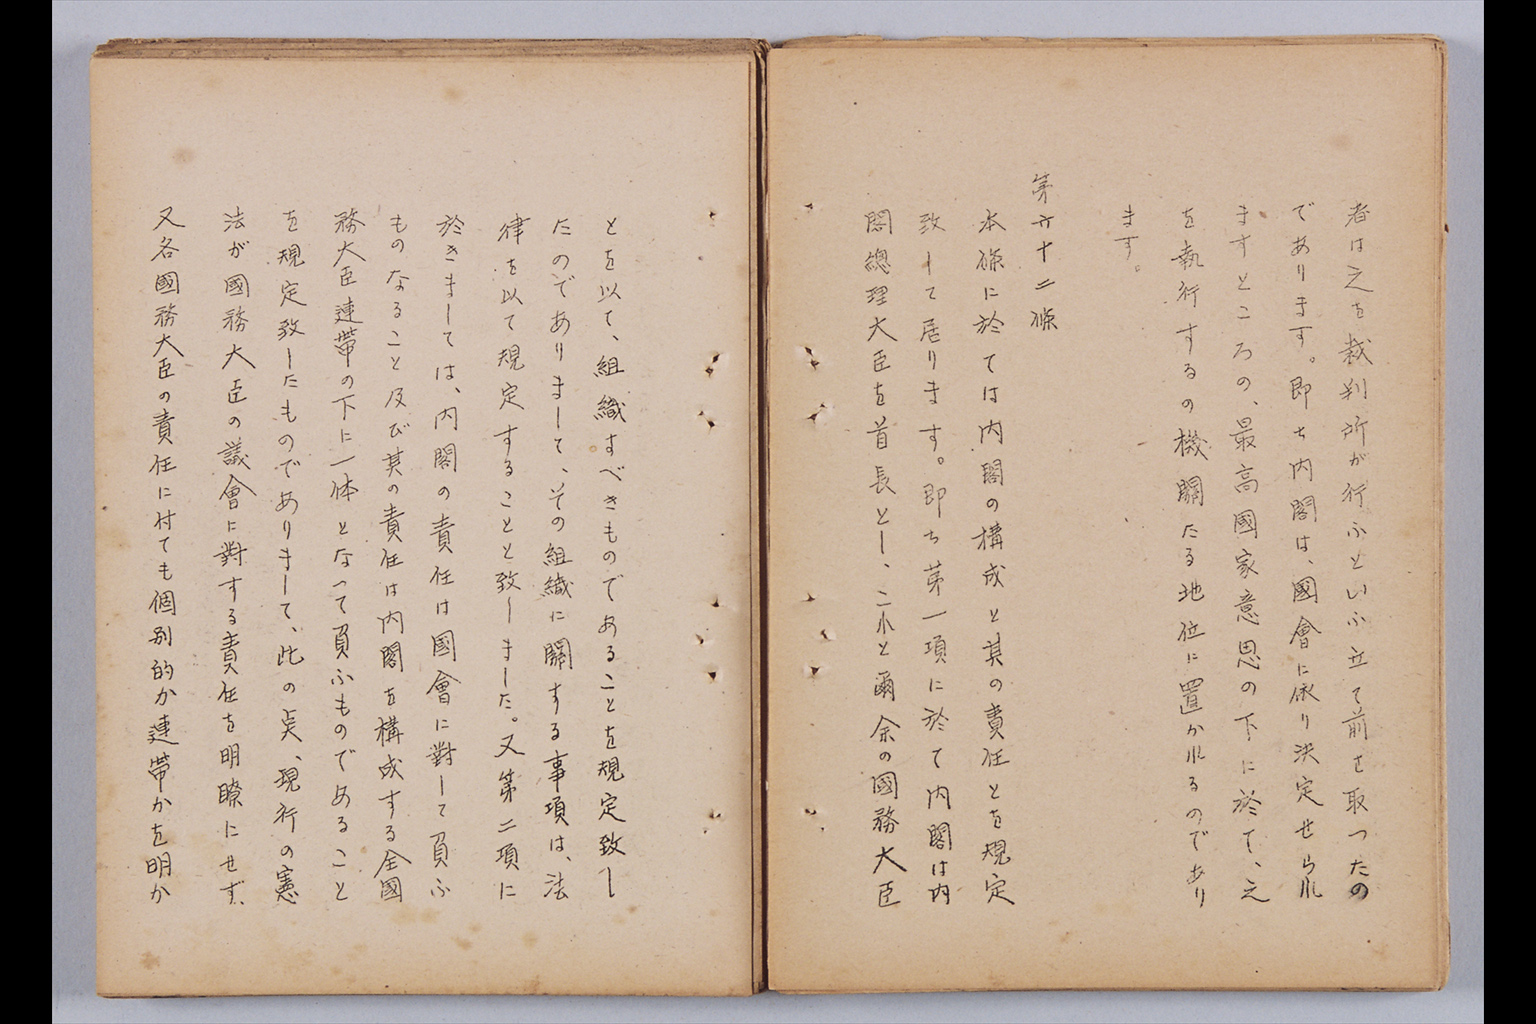 者は之を裁判所が行ふといふ立て前を取つたの
であります。即ち内閣は、國會に依り決定せられ
ますところの、最高國家意思の下に於て、之
を執行するの機關たる地位に置かれるのであり
ます。
第六十二條
本條に於ては内閣の構成と其の責任とを規定
致して居ります。即ち第一項に於て内閣は内
閣總理大臣を首長とし、これと爾余の國務大臣
とを以て、組織すべきものであることを規定致し
たのでありまして、その組織に關する事項は、法
律を以て規定することと致しました。又第二項に
於きましては、内閣の責任は國會に對して負ふ
ものなること及び其の責任は内閣を構成する全國
務大臣連帶の下に一体となつて負ふものであること
を規定致したものでありまして、此の点、現行の憲
法が國務大臣の議會に對する責任を明瞭にせず、
又各國務大臣の責任に付ても個別的か連帶かを明か